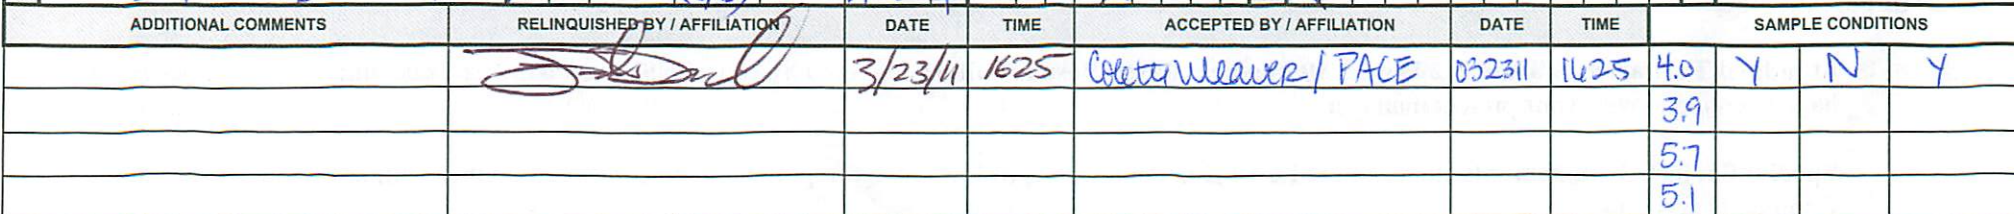 ADDITIONAL COMMENTS RELINQUISHED BY / AFFILIATION DATE TIME ACCEPTED BY / AFFILIATION DATE TIME SAMPLE CONDITIONS
3/23/11 1625 Coletta Weaver / PACE 032311 1625 4.0 Y N Y
3.9
5.7
5.1